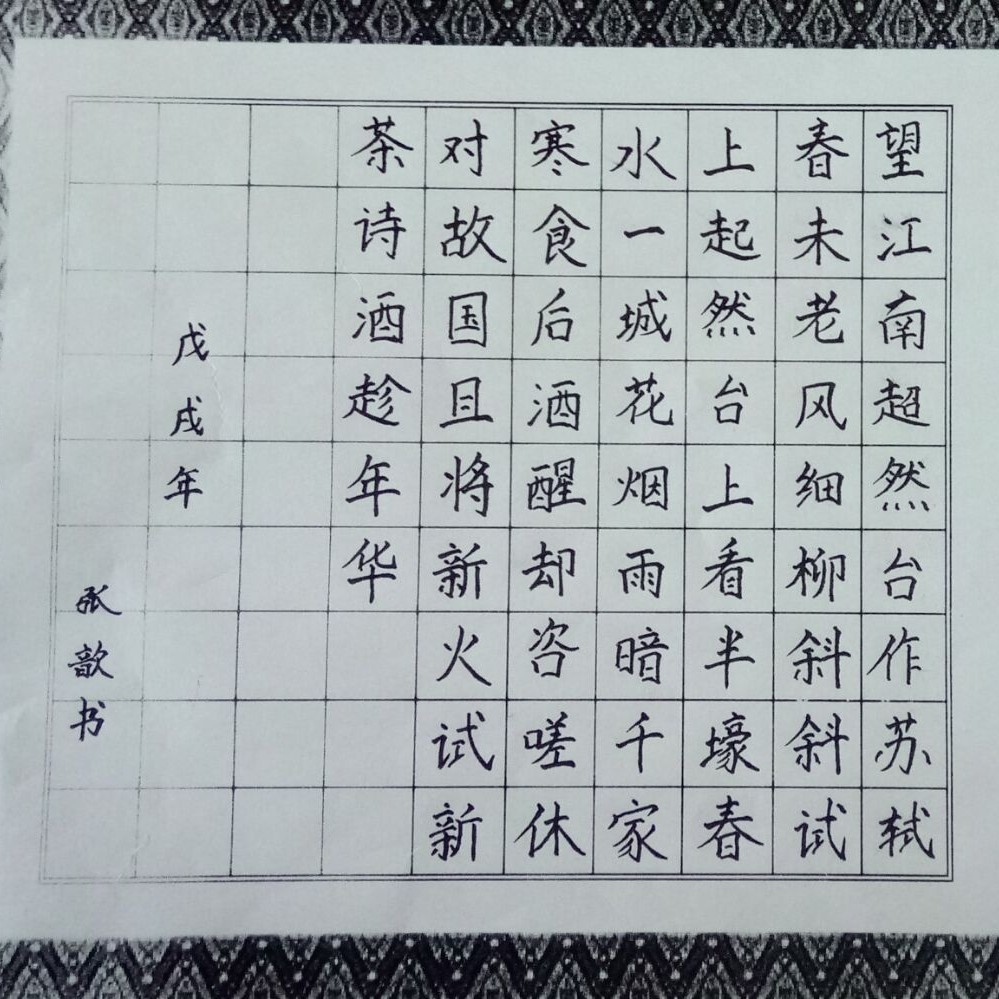 望江南超然台作苏轼
春未老风细柳斜斜试
上起然台上看半壕春
水一城花烟雨暗千家
寒食后酒醒却咨嗟休
对故国且将新火试新
茶诗酒趁年华
戊戌年
张歆书